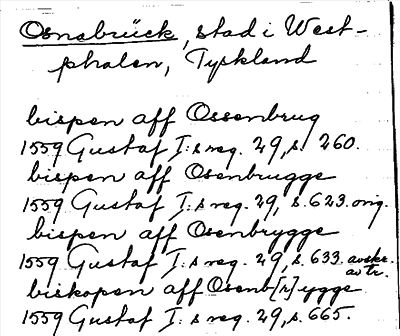 Osnabrück, stad i West-
phalen, Tyskland
bispen aff Ossenbrug
1559 Gustaf I:s reg. 29, s. 260.
bispen aff Osenbrugge
1559 Gustaf I:s reg. 29, s. 623. orig.
bispen aff Osenbrygge
1559 Gustaf I:s reg. 29, s. 633. avskr.
av Tr.
biskopen aff Osenb[r]ygge
1559 Gustaf I:s reg. 29, s. 665.